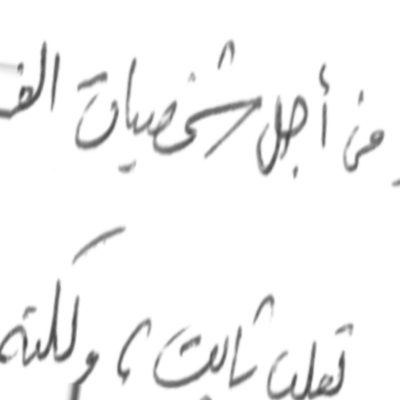 من أجل شخصيات الف
تعلب ثابت، ولكنه